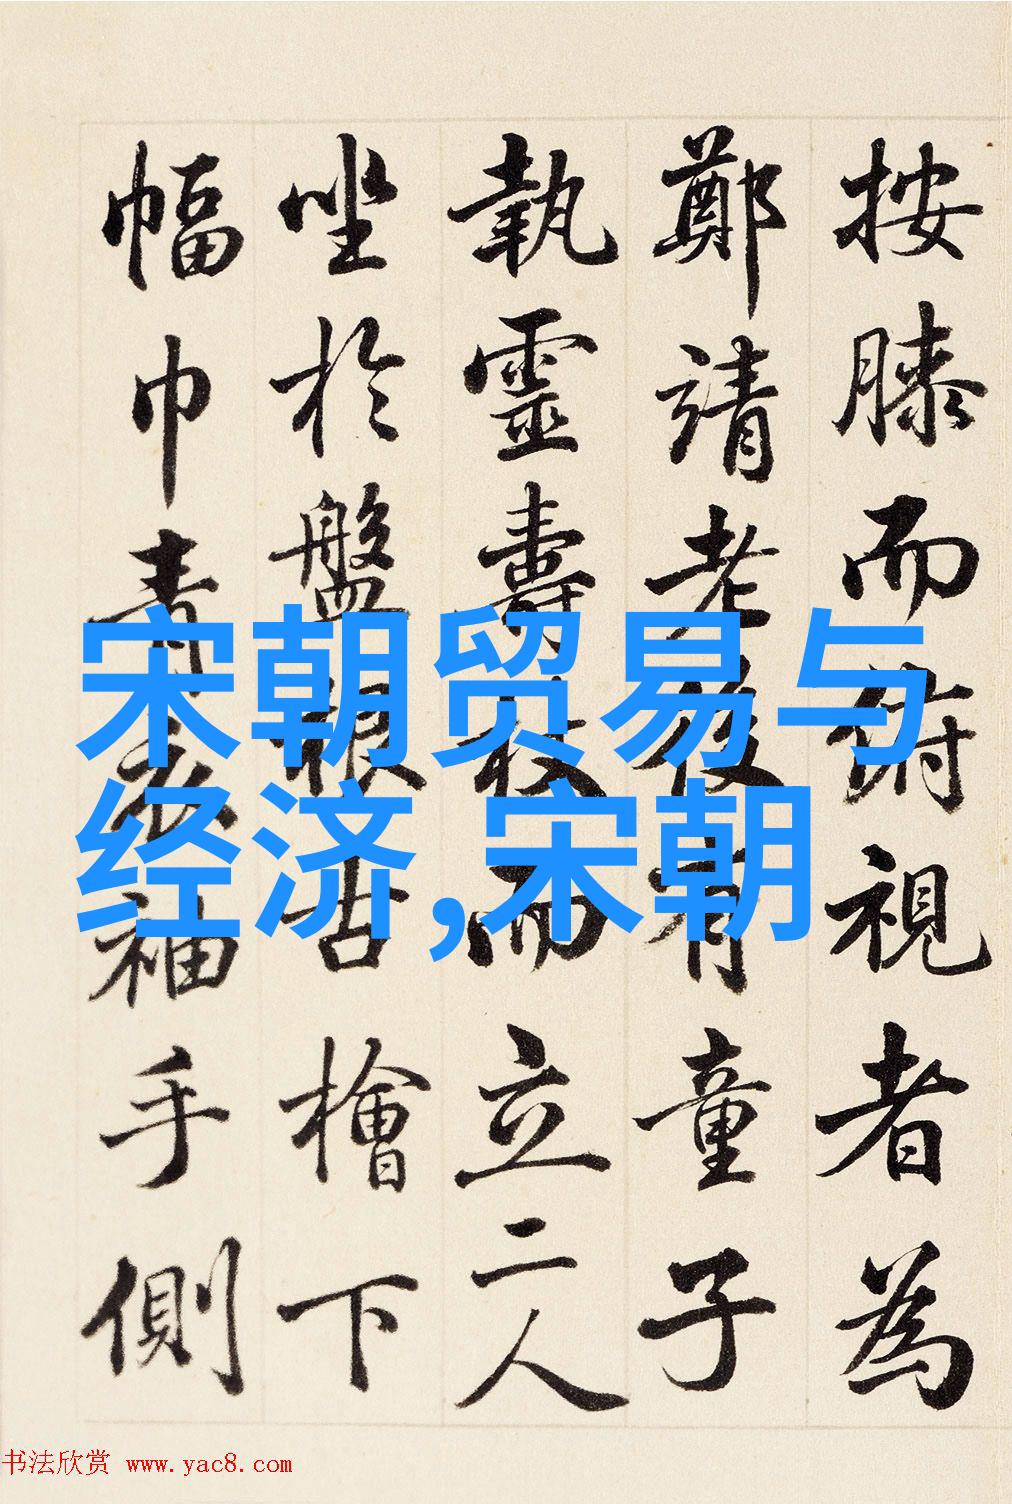 按膝而俯視者為
鄭靖老後有童子
執靈壽杖而立二人
坐於盤根古檜下
幅巾青衣袖手側
宋朝贸易与
经济,宋朝
书法欣赏 www.yac8.com